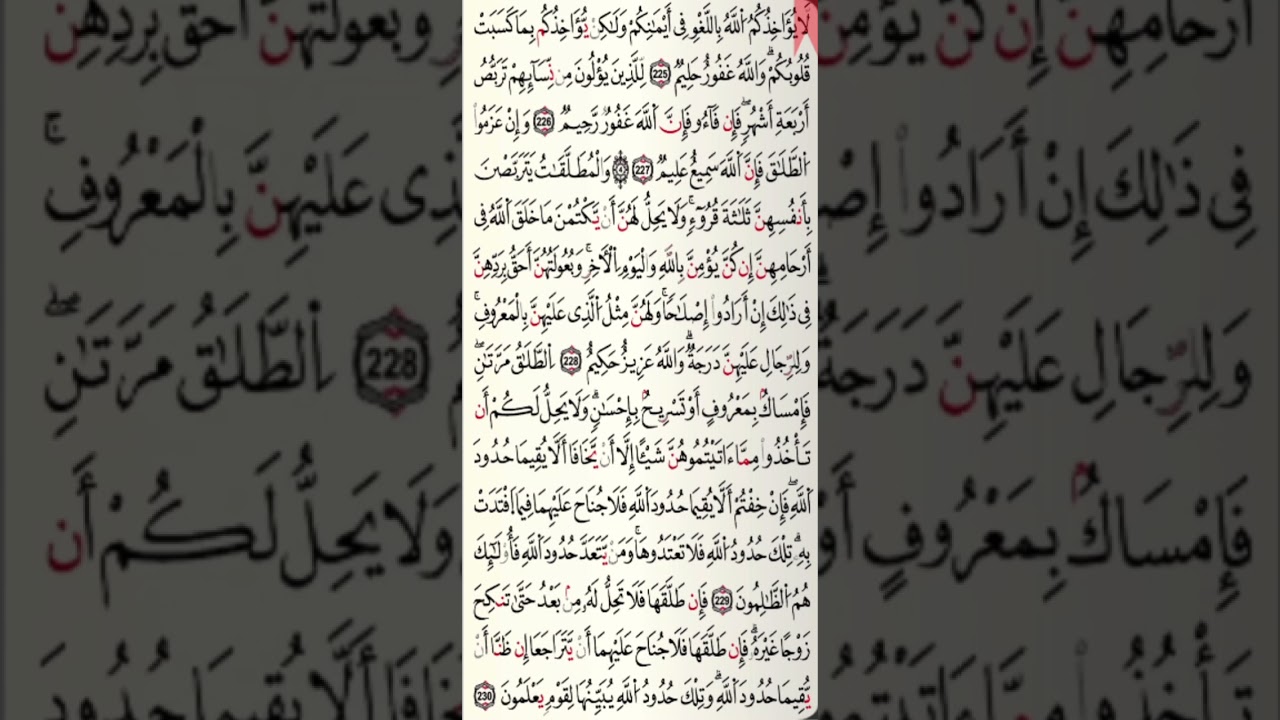 لَّا يُؤَاخِذُكُمُ اللَّهُ بِاللَّغْوِ فِي أَيْمَانِكُمْ وَلَٰكِن يُؤَاخِذُكُم بِمَا كَسَبَتْ
قُلُوبُكُمْ ۗ وَاللَّهُ غَفُورٌ حَلِيمٌ 225 لِّلَّذِينَ يُؤْلُونَ مِن نِّسَائِهِمْ تَرَبُّصُ
أَرْبَعَةِ أَشْهُرٍ ۖ فَإِن فَاءُو فَإِنَّ اللَّهَ غَفُورٌ رَّحِيمٌ 226 وَإِنْ عَزَمُوا
الطَّلَاقَ فَإِنَّ اللَّهَ سَمِيعٌ عَلِيمٌ 227 ۞ وَالْمُطَلَّقَاتُ يَتَرَبَّصْنَ
بِأَنفُسِهِنَّ ثَلَاثَةَ قُرُوءٍ ۚ وَلَا يَحِلُّ لَهُنَّ أَن يَكْتُمْنَ مَا خَلَقَ اللَّهُ فِي
أَرْحَامِهِنَّ إِن كُنَّ يُؤْمِنَّ بِاللَّهِ وَالْيَوْمِ الْآخِرِ ۚ وَبُعُولَتُهُنَّ أَحَقُّ بِرَدِّهِنَّ
فِي ذَٰلِكَ إِنْ أَرَادُوا إِصْلَاحًا ۚ وَلَهُنَّ مِثْلُ الَّذِي عَلَيْهِنَّ بِالْمَعْرُوفِ ۚ
وَلِلرِّجَالِ عَلَيْهِنَّ دَرَجَةٌ ۗ وَاللَّهُ عَزِيزٌ حَكِيمٌ 228 الطَّلَاقُ مَرَّتَانِ ۖ
فَإِمْسَاكٌ بِمَعْرُوفٍ أَوْ تَسْرِيحٌ بِإِحْسَانٍ ۗ وَلَا يَحِلُّ لَكُمْ أَن
تَأْخُذُوا مِمَّا ءَاتَيْتُمُوهُنَّ شَيْئًا إِلَّا أَن يَخَافَا أَلَّا يُقِيمَا حُدُودَ
اللَّهِ ۖ فَإِنْ خِفْتُمْ أَلَّا يُقِيمَا حُدُودَ اللَّهِ فَلَا جُنَاحَ عَلَيْهِمَا فِيمَا افْتَدَتْ
بِهِ ۗ تِلْكَ حُدُودُ اللَّهِ فَلَا تَعْتَدُوهَا ۚ وَمَن يَتَعَدَّ حُدُودَ اللَّهِ فَأُولَٰئِكَ
هُمُ الظَّالِمُونَ 229 فَإِن طَلَّقَهَا فَلَا تَحِلُّ لَهُ مِن بَعْدُ حَتَّىٰ تَنكِحَ
زَوْجًا غَيْرَهُ ۗ فَإِن طَلَّقَهَا فَلَا جُنَاحَ عَلَيْهِمَا أَن يَتَرَاجَعَا إِن ظَنَّا أَن
يُقِيمَا حُدُودَ اللَّهِ ۗ وَتِلْكَ حُدُودُ اللَّهِ يُبَيِّنُهَا لِقَوْمٍ يَعْلَمُونَ 230